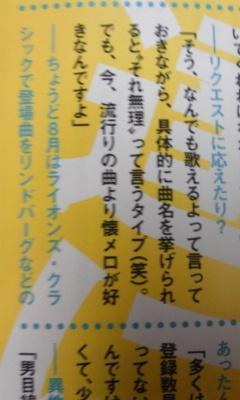 ――リクエストに応えたり？
「そう、なんでも歌えるよって言って
おきながら、具体的に曲名を挙げられ
ると〝それ無理〟って言うタイプ（笑）。
でも、今、流行りの曲より懐メロが好
きなんですよ」
――ちょうど８月はライオンズ・クラ
シックで登場曲をリンドバーグなどの
あった
「多くは
登録数
ってない
んですけ
くて、少
「男目